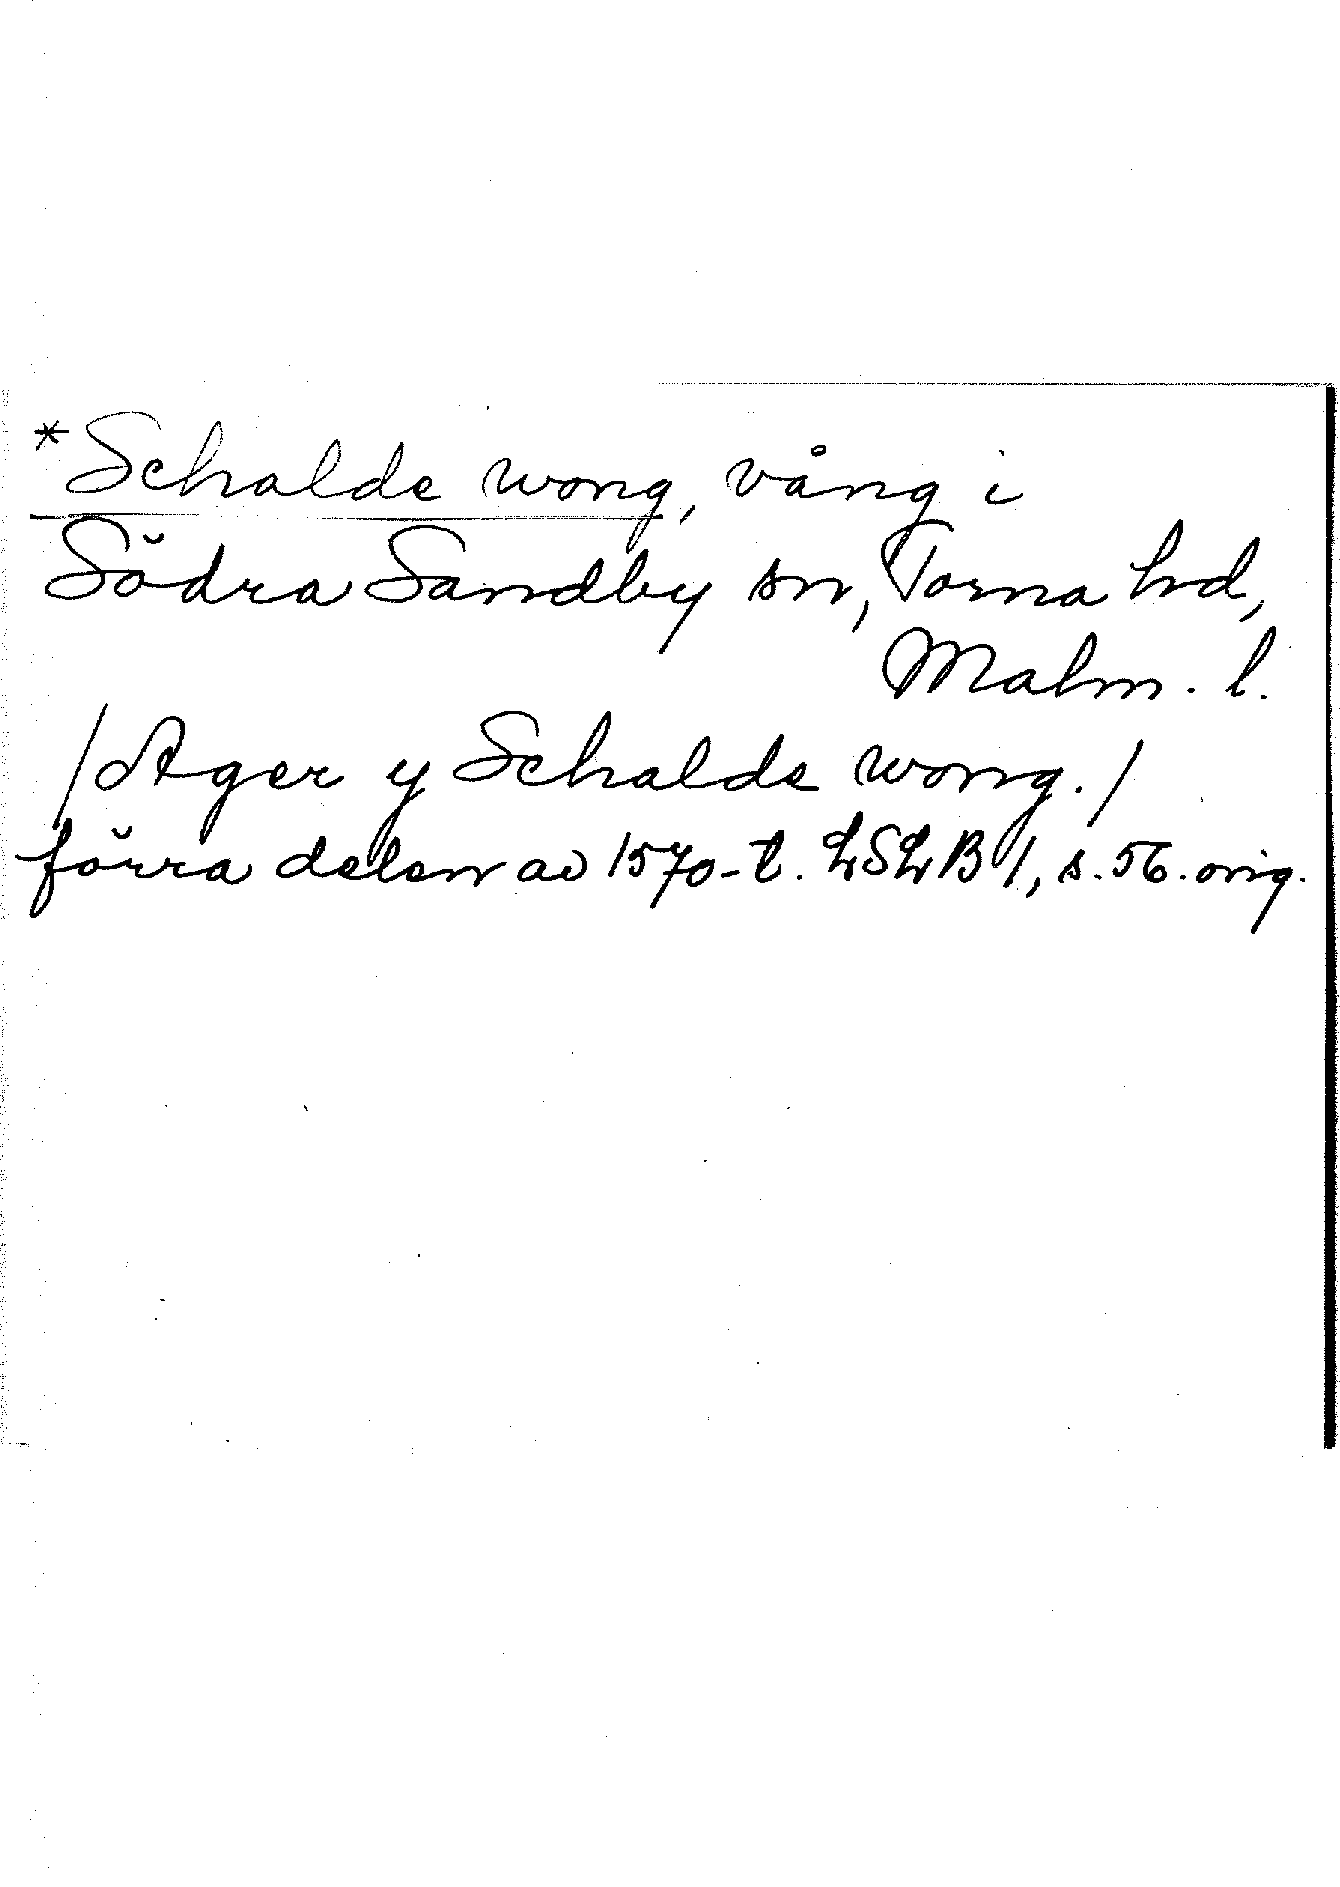 *Schalde wong, vång i
Södra Sandby sn, Torna hd,
Malm. l.
/Ager y Schalde wong./
förra delen av 1570-t. LSLB 1, s. 56. orig.